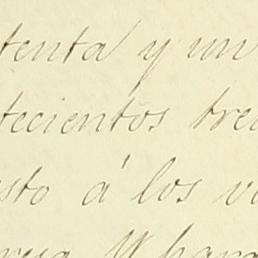 tenta y un
tecientos tre
sto á los v